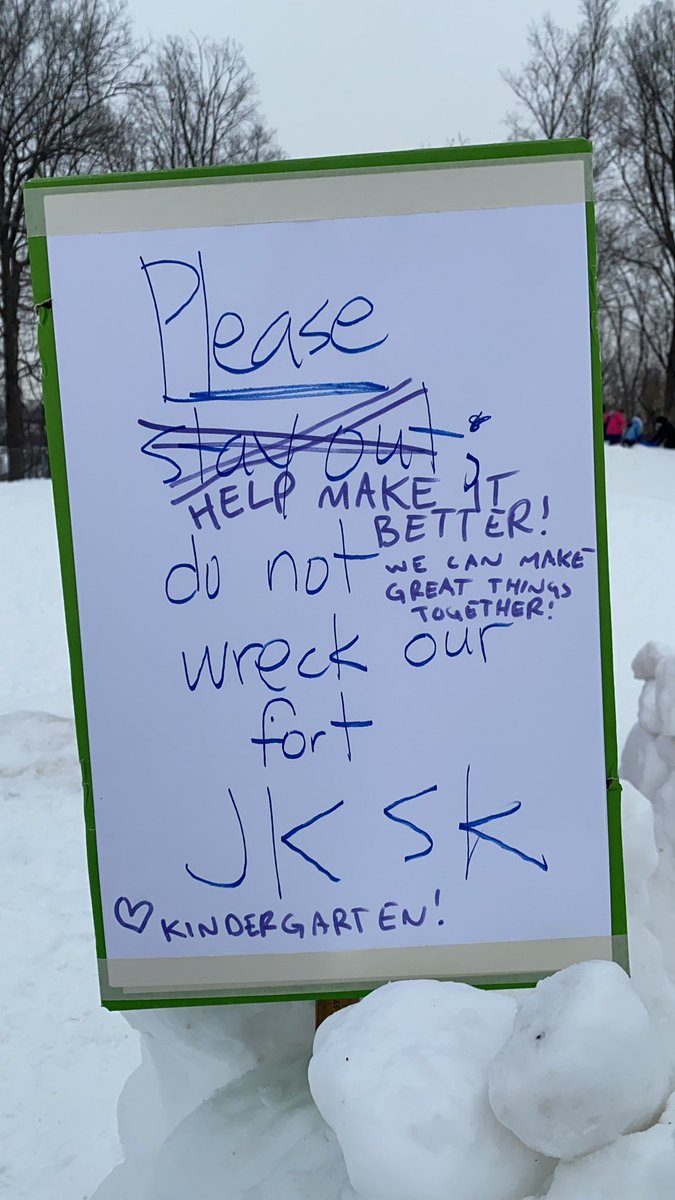 Please
stay out,
HELP MAKE IT
BETTER!
do not
WE CAN MAKE
GREAT THINGS
TOGETHER!
wreck our
fort
JK SK
♡ KINDERGARTEN!